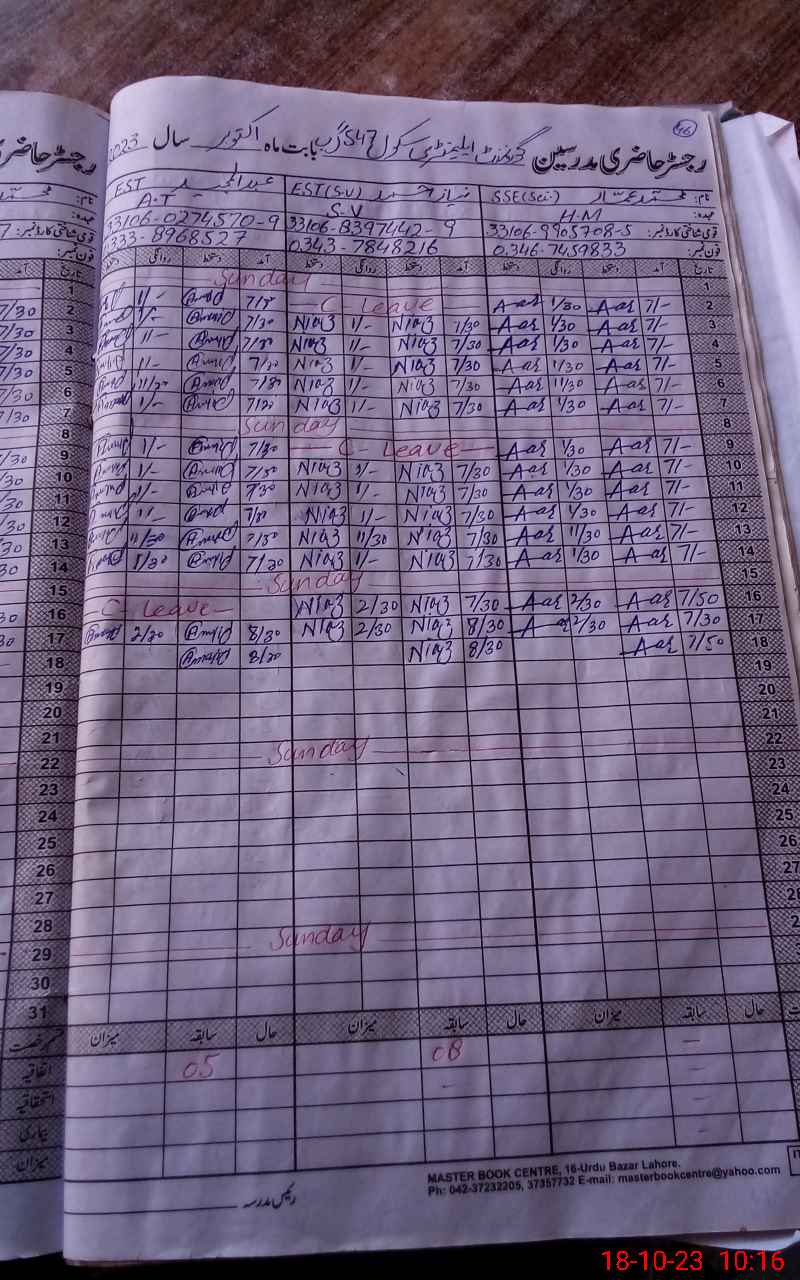 46
رجسٹر حاضری مدرسین گورنمنٹ ایلیمنٹری سکول 547 بابت ماہ اکتوبر سال 2023
نام: محمد عمار SSE(Sci:) نیاز احمد EST(S.V) عبدالمجید EST
عہدہ: H.M S.V A.T
قومی شناختی کارڈ نمبر: 33106-9965708-5 33106-8397442-9 33106-0274570-9
فون نمبر: 0346-7459833 0343-7848216 0333-8968527
تاریخ آمد دستخط روانگی دستخط آمد دستخط روانگی دستخط آمد دستخط روانگی دستخط
1 Sunday
2 7/- Aar 1/30 Aar C-Leave 7/30 Amjid 1/-
3 7/- Aar 1/30 Aar 7/30 Niaz 1/- Niaz 7/30 Amjid 1/-
4 7/- Aar 1/30 Aar 7/30 Niaz 1/- Niaz 7/30 Amjid 1/-
5 7/- Aar 1/30 Aar 7/30 Niaz 1/- Niaz 7/30 Amjid 1/-
6 7/- Aar 11/30 Aar 7/30 Niaz 1/- Niaz 7/30 Amjid 11/30
7 7/- Aar 1/30 Aar 7/30 Niaz 1/- Niaz 7/20 Amjid 1/-
8 Sunday
9 7/- Aar 1/30 Aar C-Leave 7/30 Amjid 1/-
10 7/- Aar 1/30 Aar 7/30 Niaz 1/- Niaz 7/30 Amjid 1/-
11 7/- Aar 1/30 Aar 7/30 Niaz 1/- Niaz 7/30 Amjid 1/-
12 7/- Aar 1/30 Aar 7/30 Niaz 1/- Niaz 7/30 Amjid 1/-
13 7/- Aar 11/30 Aar 7/30 Niaz 11/30 Niaz 7/30 Amjid 11/30
14 7/- Aar 1/30 Aar 7/30 Niaz 1/- Niaz 7/20 Amjid 1/20
15 Sunday
16 7/50 Aar 2/30 Aar 7/30 Niaz 2/30 Niaz C-Leave
17 7/30 Aar 2/30 Aar 8/30 Niaz 2/30 Niaz 8/30 Amjid 2/30
18 7/50 Aar 8/30 Niaz 8/20 Amjid
19
20
21
22 Sunday
23
24
25
26
27
28
29 Sunday
30
31
حال سابقہ میزان حال سابقہ میزان حال سابقہ میزان
اتفاقیہ 08 05
استحقاقیہ
بیماری
میزان
رئیس مدرسہ
MASTER BOOK CENTRE, 16-Urdu Bazar Lahore.
Ph: 042-37232205, 37357732 E-mail: masterbookcentre@yahoo.com
18-10-23 10:16